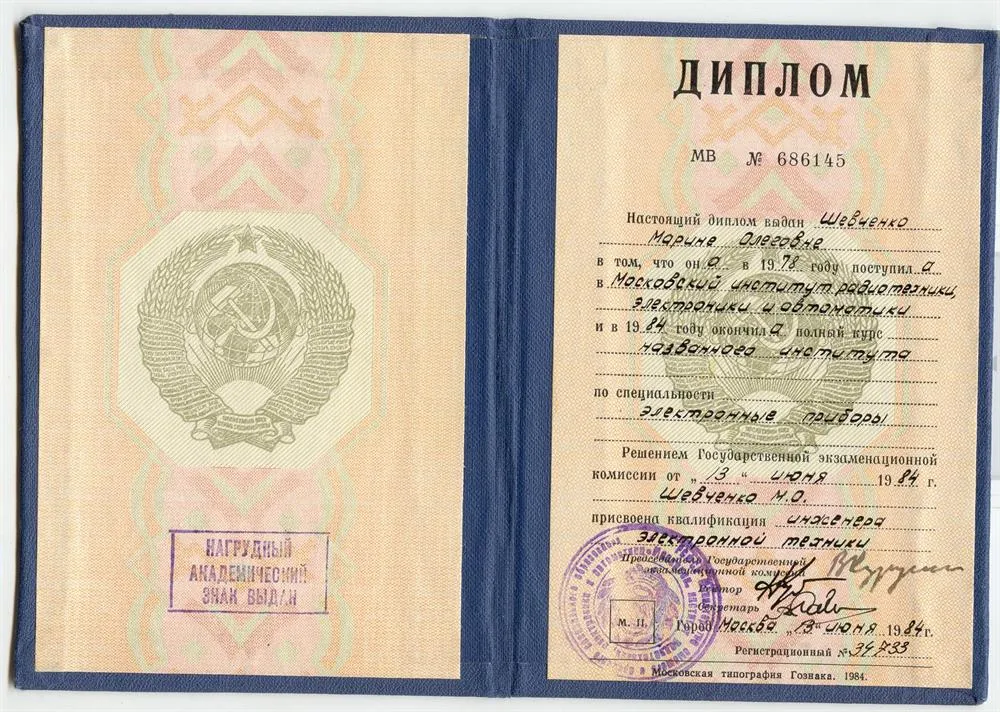 НАГРУДНЫЙ
АКАДЕМИЧЕСКИЙ
ЗНАК ВЫДАН
ДИПЛОМ
МВ № 686145
Настоящий диплом выдан Шевченко
Марине Олеговне
в том, что он а в 1978 году поступил а
в Московский институт радиотехники,
электроники и автоматики
и в 1984 году окончил а полный курс
названного института
по специальности
электронные приборы
Решением Государственной экзаменационной
комиссии от „13“ июня 1984 г.
Шевченко М.О.
присвоена квалификация инженера
электронной техники
Председатель Государственной
экзаменационной комиссии
Ректор
Секретарь
М. П.
Город Москва „13“ июня 1984г.
Регистрационный № 34733
Московская типография Гознака. 1984.